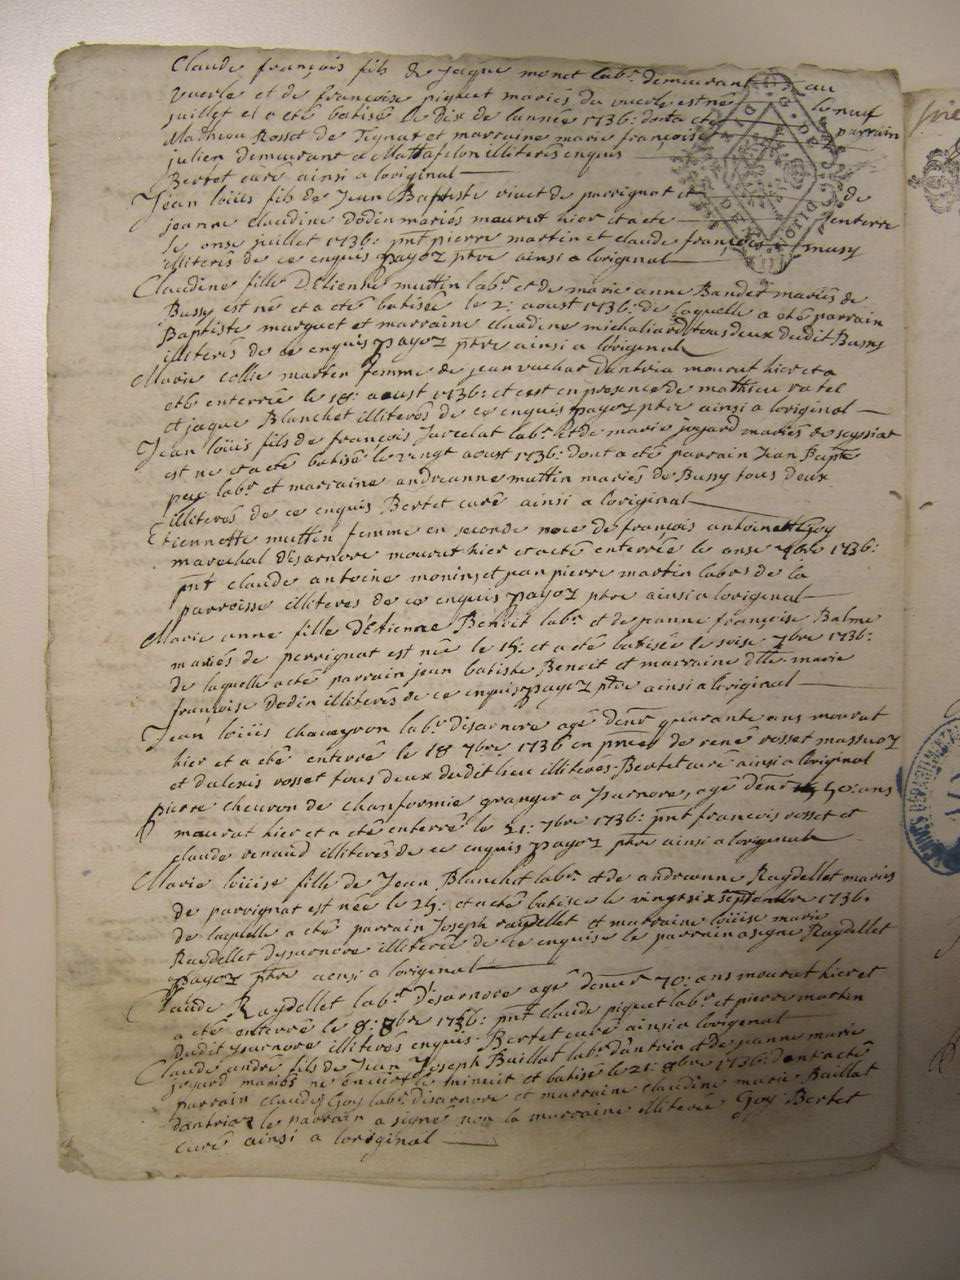 Claude françois fils de jaque monet labr. demeurant au
vuerle et de françoise piquet mariés du vuerle est né le neuf
juillet et a eté batisé le dix de lannée 1736: dont a eté parrain
Mathieu Rosset de Tignat et marraine marie françoise
julien demeurant a Mattafelon illiterés enquis
Bertet curé ainsi a loriginal
Jean loüis fils de Jean Baptiste vivet de perrignat et de
jeanne claudine dodin mariés mourut hier et a eté enterré
le onse juillet 1736: pnt pierre martin et claude françois musy
illiterés de ce enquis payoz ptre ainsi a loriginal
Claudine fille D'Etienne muttin labr. et de marie anne Bandet mariés de
Bussy est né et a eté batisée le 2: aoust 1736: de laquelle a eté parrain
Baptiste marguet et marraine claudine michaliard tous deux dudit Bussy
illiterés de ce enquis payoz ptre ainsi a loriginal
Marie collie martin femme de jean vuchat dantria mourut hier et a
eté enterrée le 18: aoust 1736: et c'est en presence de mathieu vatel
et jaque Blanchet illiterés de ce enquis payoz ptre ainsi a loriginal
Jean loüis fils de françois Jurcelat labr. et de marie joyard mariés de seyssiat
est né et a eté batisé le vingt aoust 1736: dont a eté parrain Jean Bapte
pey labr. et marraine andreanne muttin mariés de Bussy tous deux
illiterés de ce enquis Bertet curé ainsi a loriginal
Etiennette muttin femme en seconde noce de françois antoine Goy
marechal disarnore mourut hier et a eté enterrée le onse 7bre 1736:
pnt claude antoine monin et jean pierre martin labrs de la
parroisse illiteres de ce enquis payoz ptre ainsi a loriginal
Marie anne fille d'Etienne Benoit labr. et de jeanne françoise Balme
mariés de perrignat est née le 15: et a eté batisée le seise 7bre 1736:
de laquelle a eté parrain jean batiste Benoit et marraine dlle marie
françoise Dodin illiterés de ce enquis payoz ptre ainsi a loriginal
Jean loüis chaveyron labr. disarnore agé denvr quarante ans mourut
hier et a eté enterré le 18 7bre 1736 en pnce de rené rosset massuoz
et dalexis rosset tous deux dudit lieu illiteres. Bertet curé ainsi a loriginal
pierre cheuron de chanformie granger a Isarnore, agé denvr 50: ans
mourut hier et a eté enterré le 21: 7bre 1736: pnt francois rosset et
claude renaud illiterés de ce enquis payoz ptre ainsi a loriginal
Marie loüise fille de Jean Blanchet labr. et de andreanne Raydellet mariés
de perrignat est née le 25: et a eté batisée le vingt six septembre 1736:
de laquelle a eté parrain Joseph raydellet et marraine loüise marie
Raydellet dysarnore illiterée de ce enquise le parrain a signé Raydellet
payoz ptre ainsi a loriginal
Claude Raydellet labr. d'ésarnore agé denvr 70: ans mourut hier et
a eté enterré le 8: 8bre 1736: pnt claude piquet labr. et pierre martin
dudit ysarnore illiterés enquis. Bertet curé ainsi a loriginal
Claude andré fils de Jean Joseph Baillat labr. dantria et de jeanne marie
joyard mariés né environ le minuit et batisé le 21: 8bre 1736: dont a eté
parrain claude Goy labr. disarnore et marraine claudine marie Baillat
dantria le parrain a signé non la marraine illiterée Goy Bertet
curé ainsi a loriginal